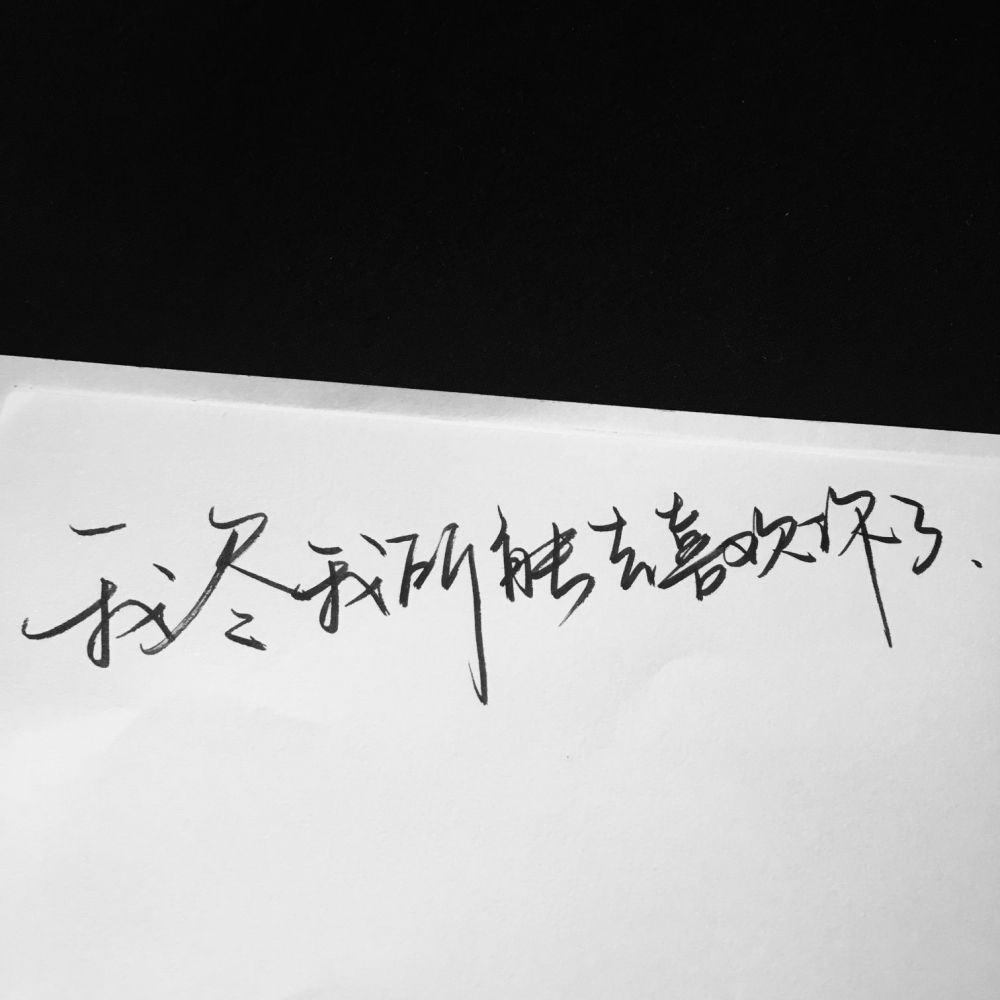 我尽我所能去喜欢你了.